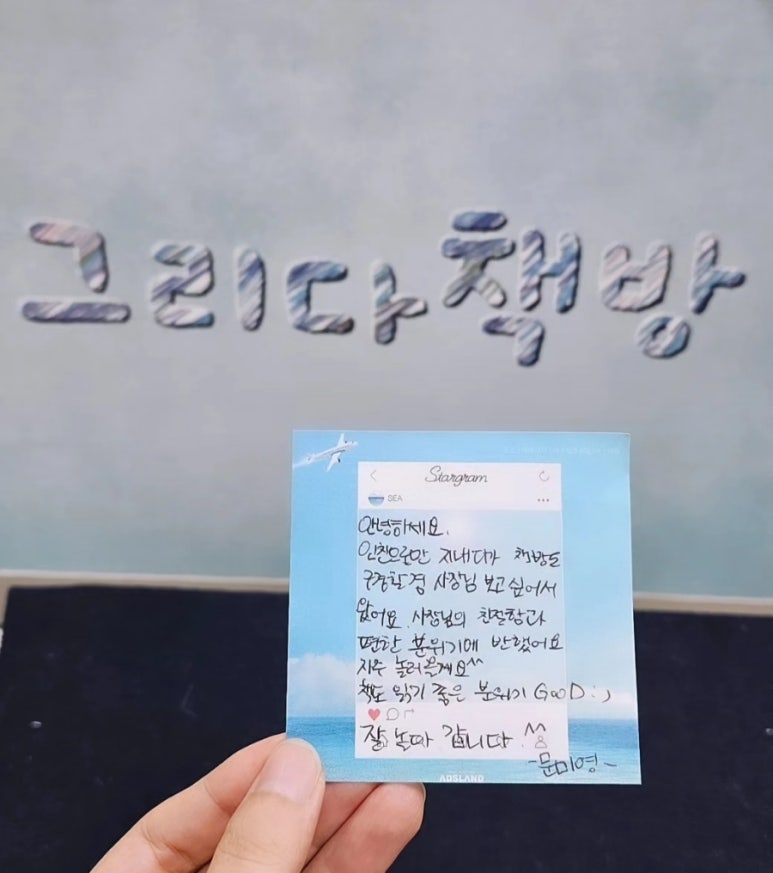 그리다책방
Stargram
SEA
안녕하세요.
인친으로만 지내다가 책방도
구경할겸 사장님 보고 싶어서
왔어요. 사장님의 친절함과
편한 분위기에 반했어요
자주 놀러올게요^^
책도 읽기 좋은 분위기 GOOD :)
잘 놀다 갑니다. ^^
-문미영-
ADSLAND